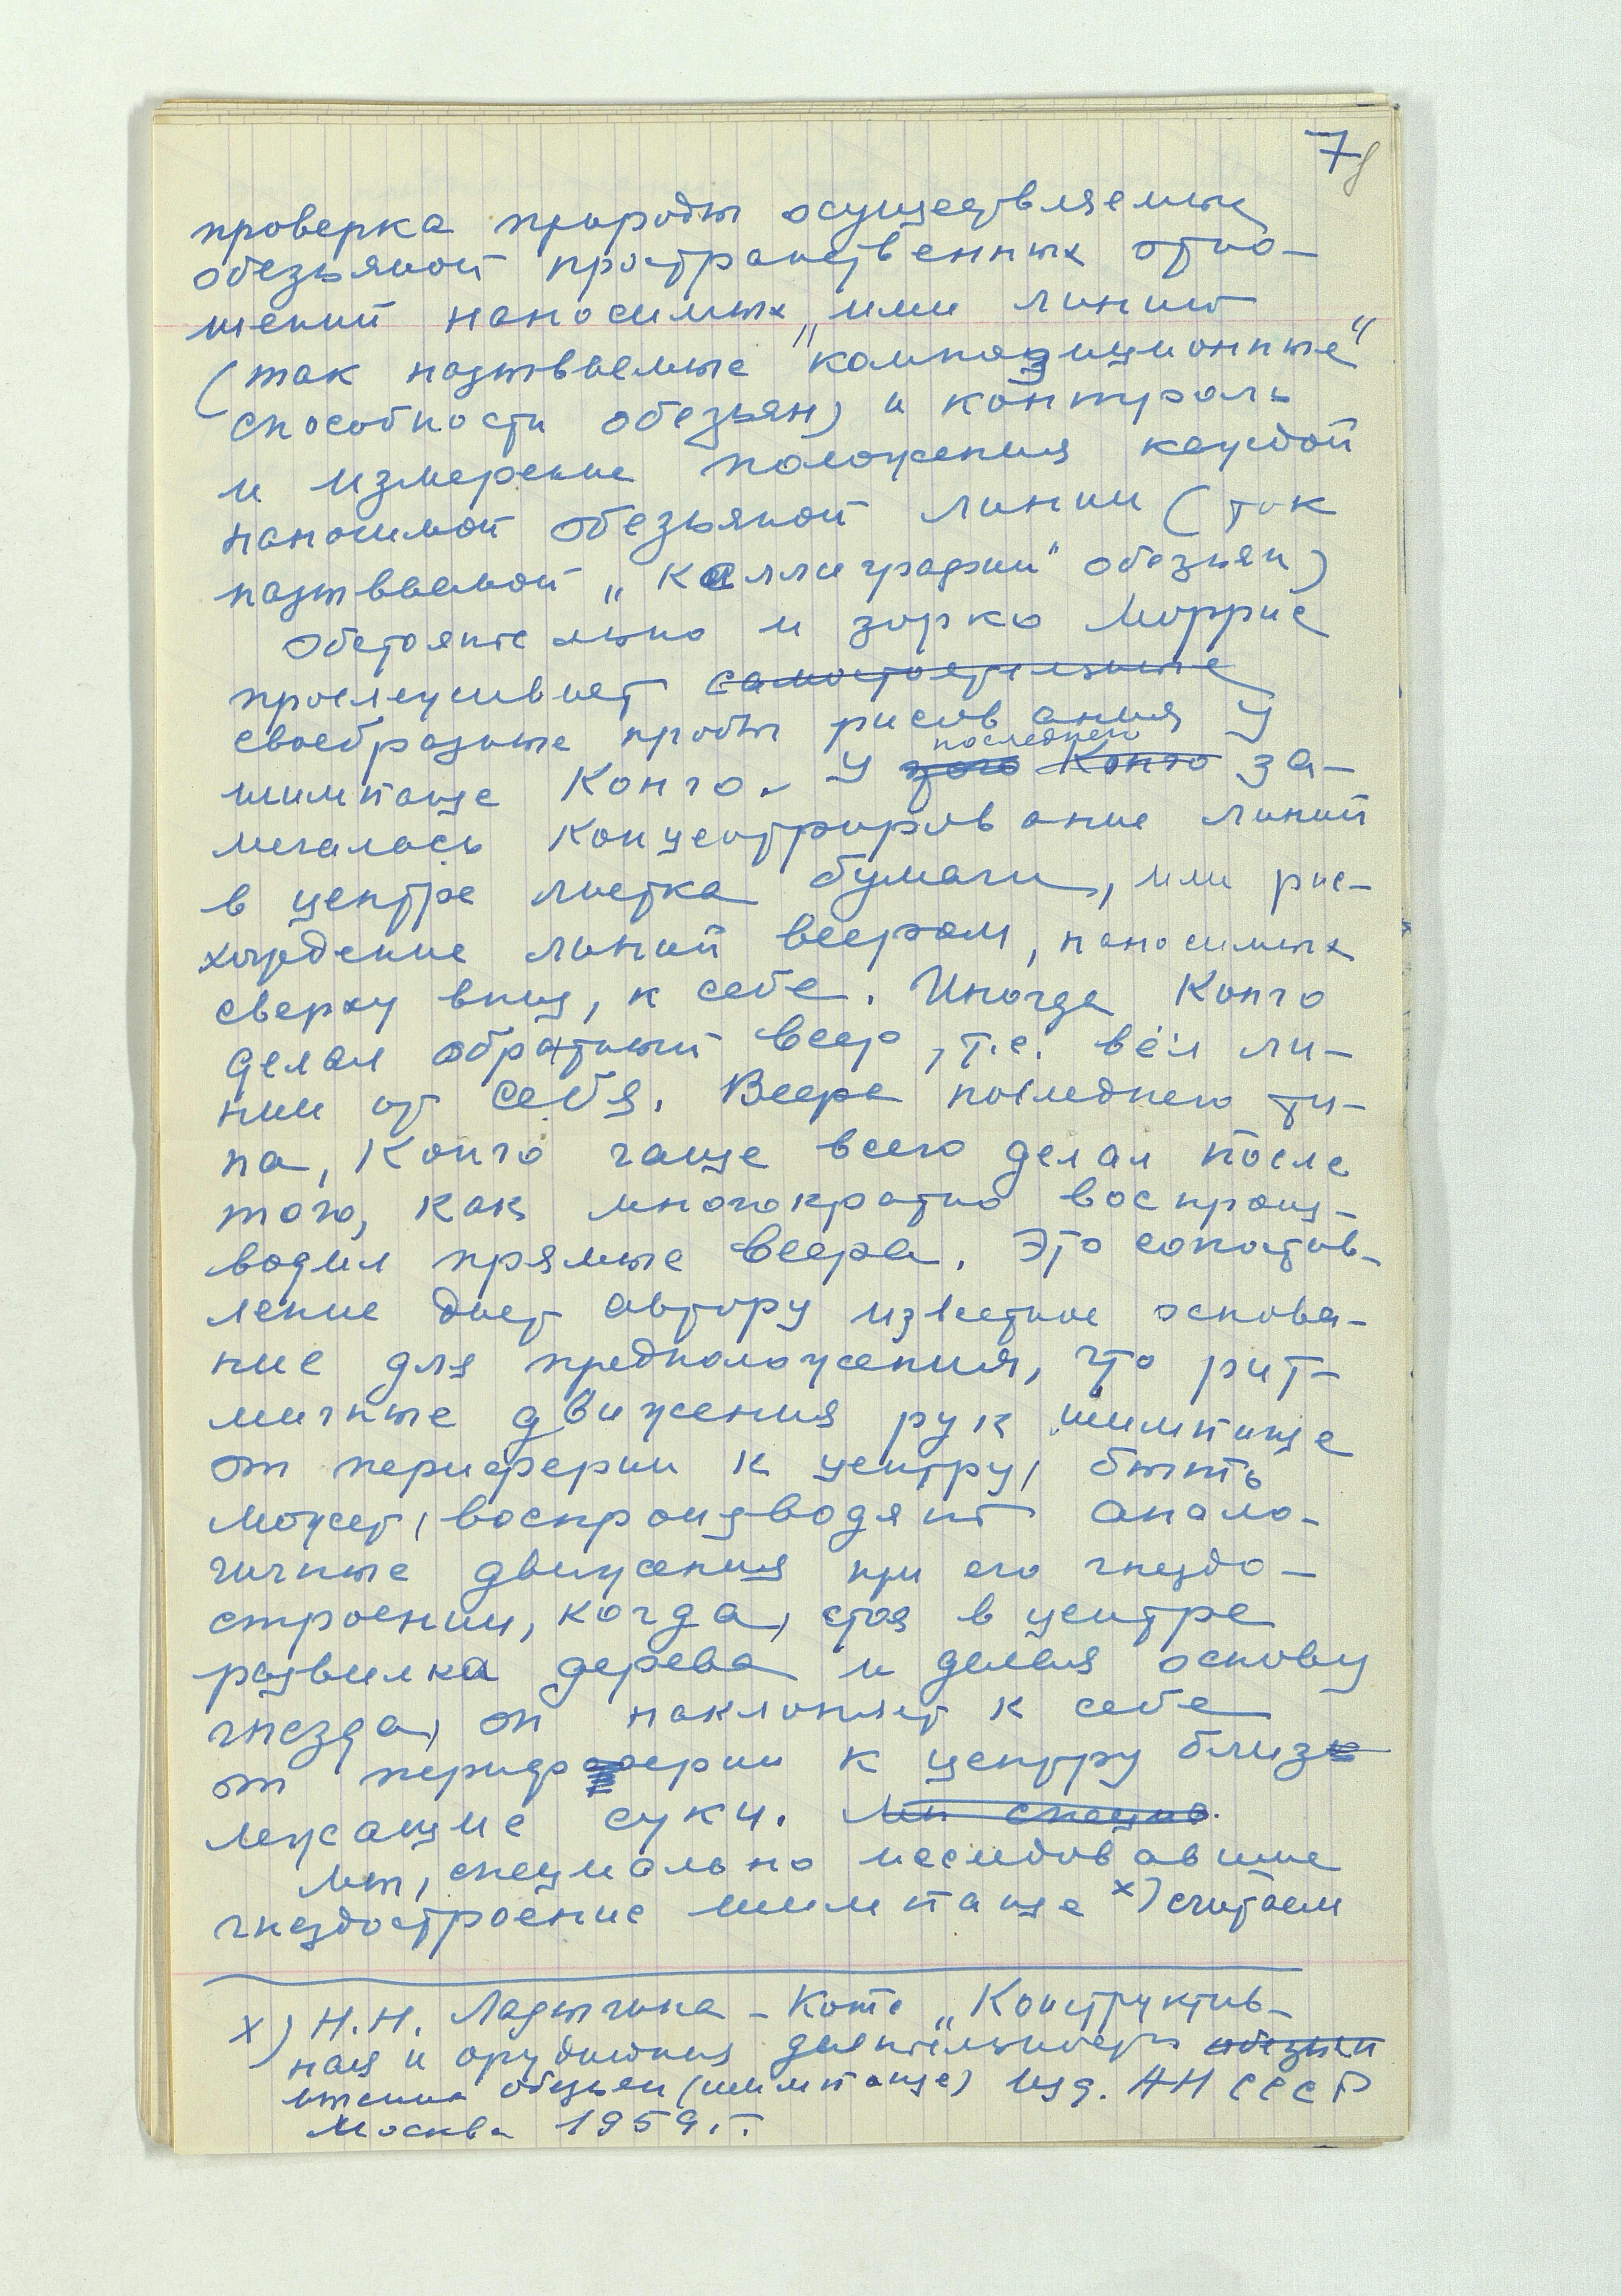 7
8
проверка природы осуществляемых
обезьяной пространственных отно-
шений наносимых ими линий
(так называемые "композиционные"
способности обезьян) и контроль
и измерение положения каждой
наносимой обезьяной линии (так
называемой „каллиграфии" обезьян)
Обстоятельно и зорко Моррис
прослеживает самостоятельные
своебразные пробы рисования у
шимпанзе Конго. У последнего Конго за-
мечалось концентрирование линий
в центре листка бумаги, или рас-
хождение линий веером, наносимых
сверху вниз, к себе. Иногда Конго
делал обратный веер, т.е. вёл ли-
нии от себя. Веера последнего ти-
па, Конго чаще всего делал после
того, как многократно воспроиз-
водил прямые веера. Это сопостав-
ление дает автору известное основа-
ние для предположения, что рит-
мичные движения рук шимпанзе
от периферии к центру, быть
может, воспроизводят анало-
гичные движения при его гнездо-
строении, когда, стоя в центре
развилка дерева и делая основу
гнезда, он наклоняет к себе
от периферии к центру близ
лежащие суки.
Мы, специально исследовавшие
гнездостроение шимпанзе х) считаем
х) Н.Н. Ладыгина-Котс „Конструктив-
ная и орудийная деятельность обезьян
высших обезьян (шимпанзе) Изд. АН СССР
Москва 1959 г.